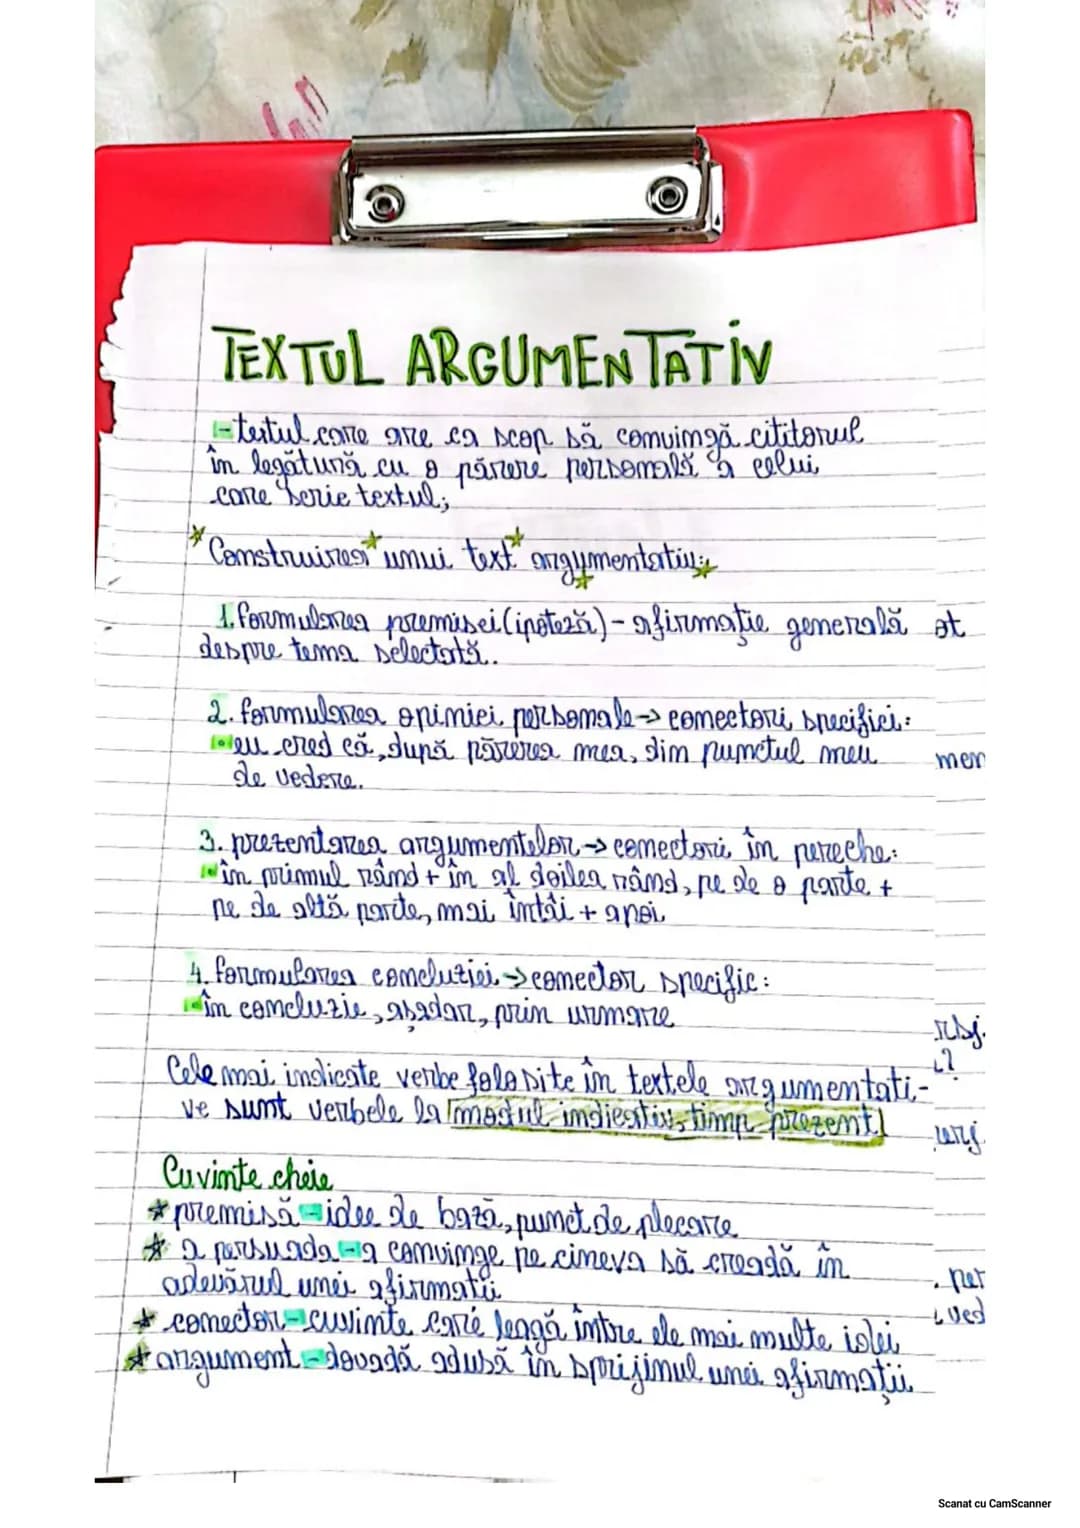 TEXTUL ARGUMENTATIV
-textul care are ca scop să convingă cititorul
în legătură cu o părere personală a celui
care scrie textul;
Construirea unui text argumentativ:
1. formularea premisei (ipoteză) - afirmație generală
despre tema selectată.
2. formularea opiniei personale → conectori specifici:
eu cred că, după părerea mea, din punctul meu
de vedere.
3. prezentarea argumentelor → conectori în pereche:
în primul rând + în al doilea rând, pe de o parte +
pe de altă parte, mai întâi + apoi
4. formularea concluziei → conector specific:
în concluzie, așadar, prin urmare
Cele mai indicate verbe folosite în textele argumentati-
ve sunt verbele la modul indicativ, timp prezent!
Cuvinte cheie
*premisă - idee de bază, punct de plecare
* a persuada - a convinge pe cineva să creadă în
adevărul unei afirmații
* conector - cuvinte care leagă între ele mai multe idei
* argument - dovadă adusă în sprijinul unei afirmații
Scanat cu CamScanner